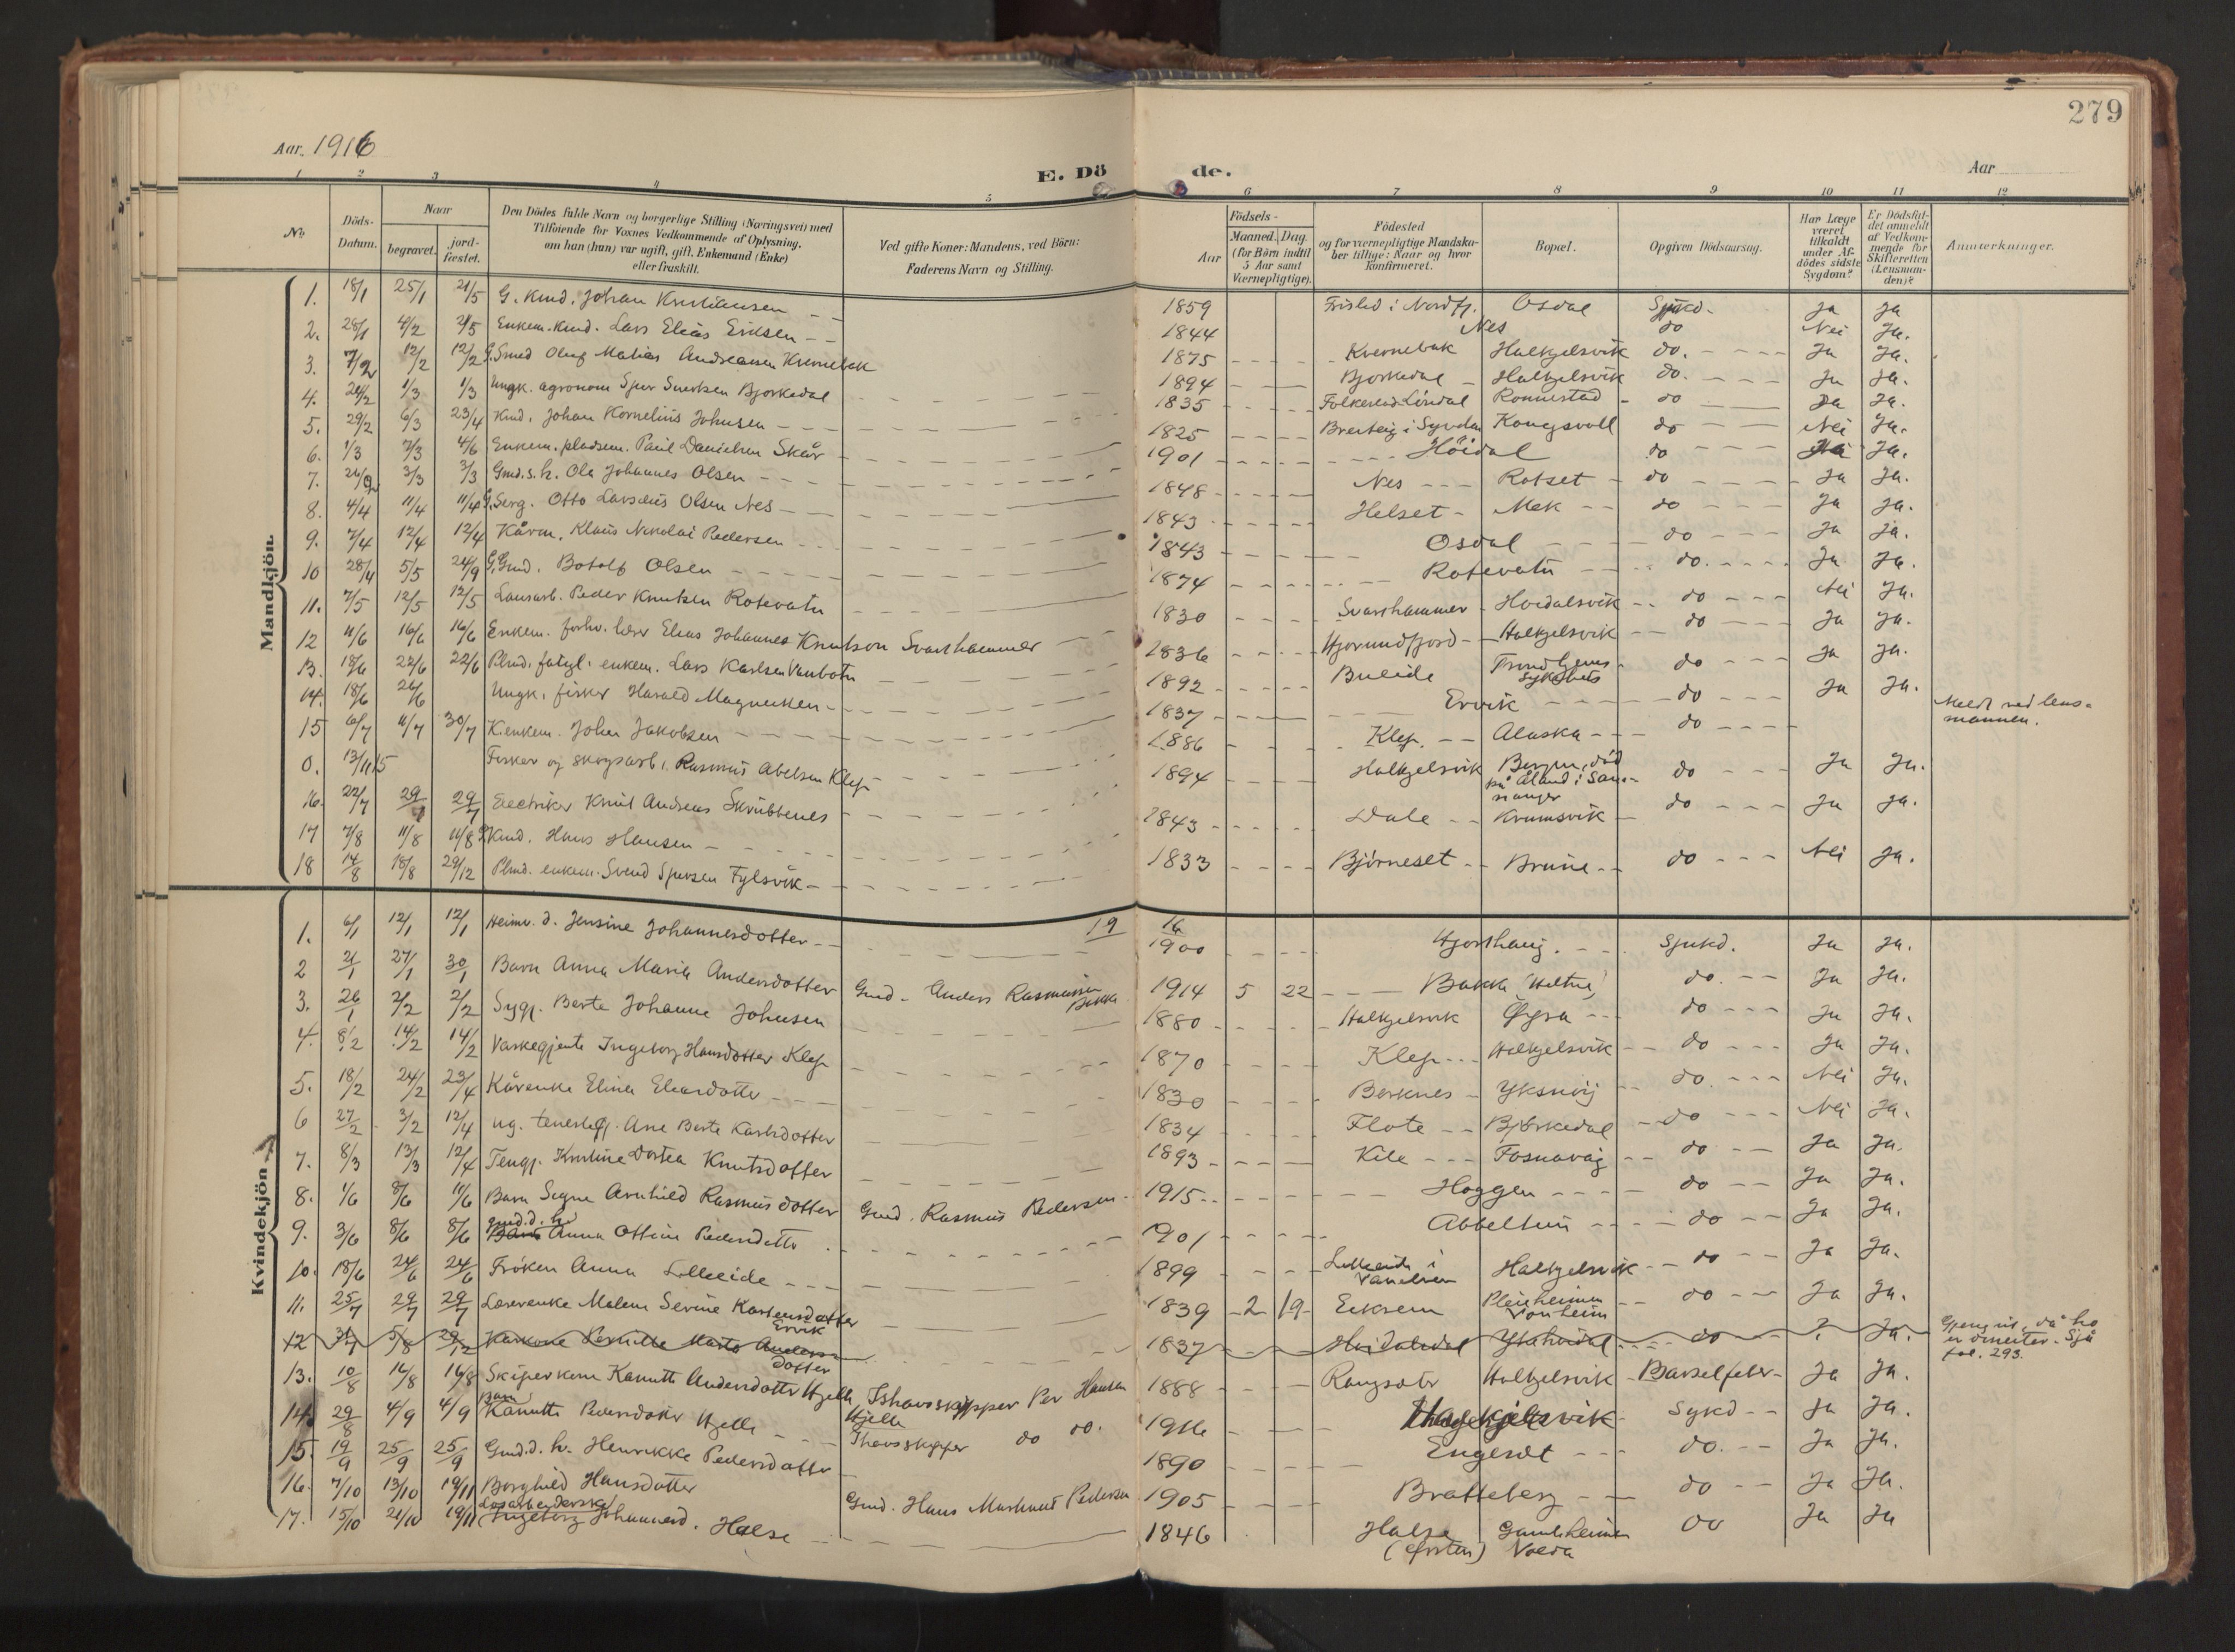 279
Aar 1916
Aar
E. Dö de.
1 2 3 4 5 6 7 8 9 10 11 12
No.
Döds-Datum.
Naar
begravet.
jord-fæstet.
Den Dödes fulde Navn og borgerlige Stilling (Næringsvei) med
Tilföiende for Voxnes Vedkommende af Oplysning,
om han (hun) var ugift, gift, Enkemand (Enke)
eller fraskilt.
Ved gifte Koner: Mandens, ved Börn:
Faderens Navn og Stilling.
Födsels-
Aar
Maaned. Dag.
(for Börn indtil
5 Aar samt
Værnepligtige).
Födested
og for værnepligtige Mandska-
ber tillige: Naar og hvor
konfirmeret.
Bopæl.
Opgiven Dödsaarsag.
Har Læge
været
tilkaldt
under Af-
dödes sidste
Sygdom?
Er Dödsfal-
det anmeldt
af Vedkom-
mende for
Skifteretten
(Lensman-
den)?
Anmærkninger.
Mandkjön.
1. 18/1 25/1 21/5 G. Kmd. Johan Kristiansen 1859 Nordfj. Osdal Sjukd. Ja Ja
2. 28/1 4/2 21/5 Enkem. Kmd. Lars Elias Eriksen 1844 Nes do Nei Ja.
3. 7/2 12/2 12/2 G. Smed Oluf Matias Andreasen Kvernebak 1875 Kvernebak Halkjelsvik do. Ja Ja.
4. 24/2 1/3 1/3 Ungk. agronom Sjur Sivertsen Bjorkedal 1894 Bjorkedal Halkjelsvik do. Ja Ja.
5. 29/2 6/3 23/4 Kmd. Johan Kornelius Johnsen 1835 Folkestad Ronnestad do Ja Ja.
6. 1/3 7/3 4/6 Enkem. pladsm. Paul Danielsen Skår 1825 Breiteig i Syvden Kongsvoll do Nei Ja.
7. 26/2 3/3 3/3 Gmd.s.h. Ole Johannes Olsen 1901 Höidal do Ja Ja.
8. 4/4 11/4 11/4 G. Serg. Otto Olsen Nes 1848 Nes Rotset do Ja Ja.
9. 7/4 12/4 12/4 Kårm. Klaus Nikolai Pedersen 1843 Helset Mek do Ja Ja.
10 28/4 5/5 24/9 G. Gmd. Botolf Olsen 1843 Osdal do Ja Ja.
11. 7/5 12/5 12/5 Lausarb. Peder Knutsen Rotevatn 1874 Rotevatn do. Ja Ja.
12 11/6 16/6 16/6 Enkem. forhv. lærer Elias Johannes Knutson Svarthammer 1830 Svarthammer Hoidalsvik do Nei Ja.
13. 18/6 22/6 22/6 Plmd. fatigl. enkem. Lars Karlsen Vanbotn 1836 Hjorundfjord Halkjelsvik do Ja Ja.
14. 18/6 26/6 Ungk. fisker Harald Magnussen 1892 Buleide Trondhjems Sykehus do Ja Ja.
15 6/7 11/7 30/7 K. enkem. Johan Jakobsen 1837 Ervik do Ja Ja.
0. 13/11 15 Fisker og skogsarb. Rasmus Abelsen Klep 1886 Klep Alaska do Meldt ved lens-
mannen.
16. 22/7 29/7 29/7 Electriker Knut Andreas Skrubbenes 1894 Halkjelsvik Bergen, död
på Åland i Sam-
nanger do Ja Ja.
17 7/8 11/8 11/8 Kmd. Hans Hansen 1843 Dale Krumsvik do Ja Ja.
18 14/8 18/8 29/12 Plmd. enkem. Svend Sjursen Fylsvik 1833 Björneset Brune do Nei Ja.
Kvindekjön
19 16
1. 6/1 12/1 12/1 Heimv. d. Jensine Johannesdotter 1900 Hjorthaug Sjukd. Ja Ja.
2 21/1 27/1 30/1 Barn Anna Maria Andersdotter Gmd. Anders Rasmussen Bakke 1914 5 22 Bakke do. Ja Ja.
3. 26/1 2/2 2/2 Sygj. Berte Johanne Johnsen 1880 Halkjelsvik Öyra do Ja Ja.
4. 8/2 14/2 14/2 Vaskegjente Ingeborg Hansdotter Klep 1870 Klep Halkjelsvik do Ja Ja.
5. 18/2 24/2 23/4 Kårenke Elina Eliasdotter 1830 Berknes Yksnöy do. Nei Ja.
6 27/2 3/2 12/4 ug. tenestegj. Ane Berte Karlsdotter 1834 Flote Björkedal do Nei Ja.
7. 8/3 13/3 12/4 Tengj. Kristine Dortea Knutsdotter 1893 Kile Fosnavåg do Ja Ja.
8. 1/6 8/6 11/6 Barn Signe Arnhild Rasmusdotter Gmd. Rasmus Pedersen 1915 Hoggen do Ja Ja.
9. 3/6 8/6 8/6 gmd.d.h. Barn Anna Ottine Pedersdotter 1901 Aabeltun do Ja Ja.
10. 18/6 24/6 24/6 Fröken Anna Lilleeide 1899 Lilleeide i Vanelven Halkjelsvik do Ja Ja.
11. 25/7 29/7 29/7 Lærerenke Malene Severine Karstensdotter Ervik 1839 2 19 Eiksem Pleieheimen Vonheim do Ja Ja.
12 31/7 5/8 29/12 Kårkone Pernille Marta Anders-
dotter 1837 Hoidalsdal Ytrehoidal do ? Ja. Gjeng ut, då ho
er dissenter. Sjå
fol. 293.
13. 10/8 16/8 16/8 Skiperkone Kanutte Andersdotter Hjelle Ishavsskipper Per Hansen
Hjelle 1888 Rangsæter Halkjelsvik Barselfeber Ja Ja.
14. 29/8 4/9 4/9 Barn Kanutte Pedersdotter Hjelle Ishavsskipper do do. 1916 Halkjelsvik Sykd Ja Ja.
15. 19/9 25/9 25/9 Gmd.d.h. Henrikke Pedersdotter 1890 Engeset do. Ja Ja.
16. 7/10 13/10 19/11 Borghild Hansdotter Gmd. Hans Martinus Pedersen 1905 Bratteberg do Ja Ja.
17. 15/10 21/10 19/11 Losarbeiderske Ingeborg Johannesd. Halse 1846 Halse
(Örsten) Gamleheimen
Volda do Ja Ja